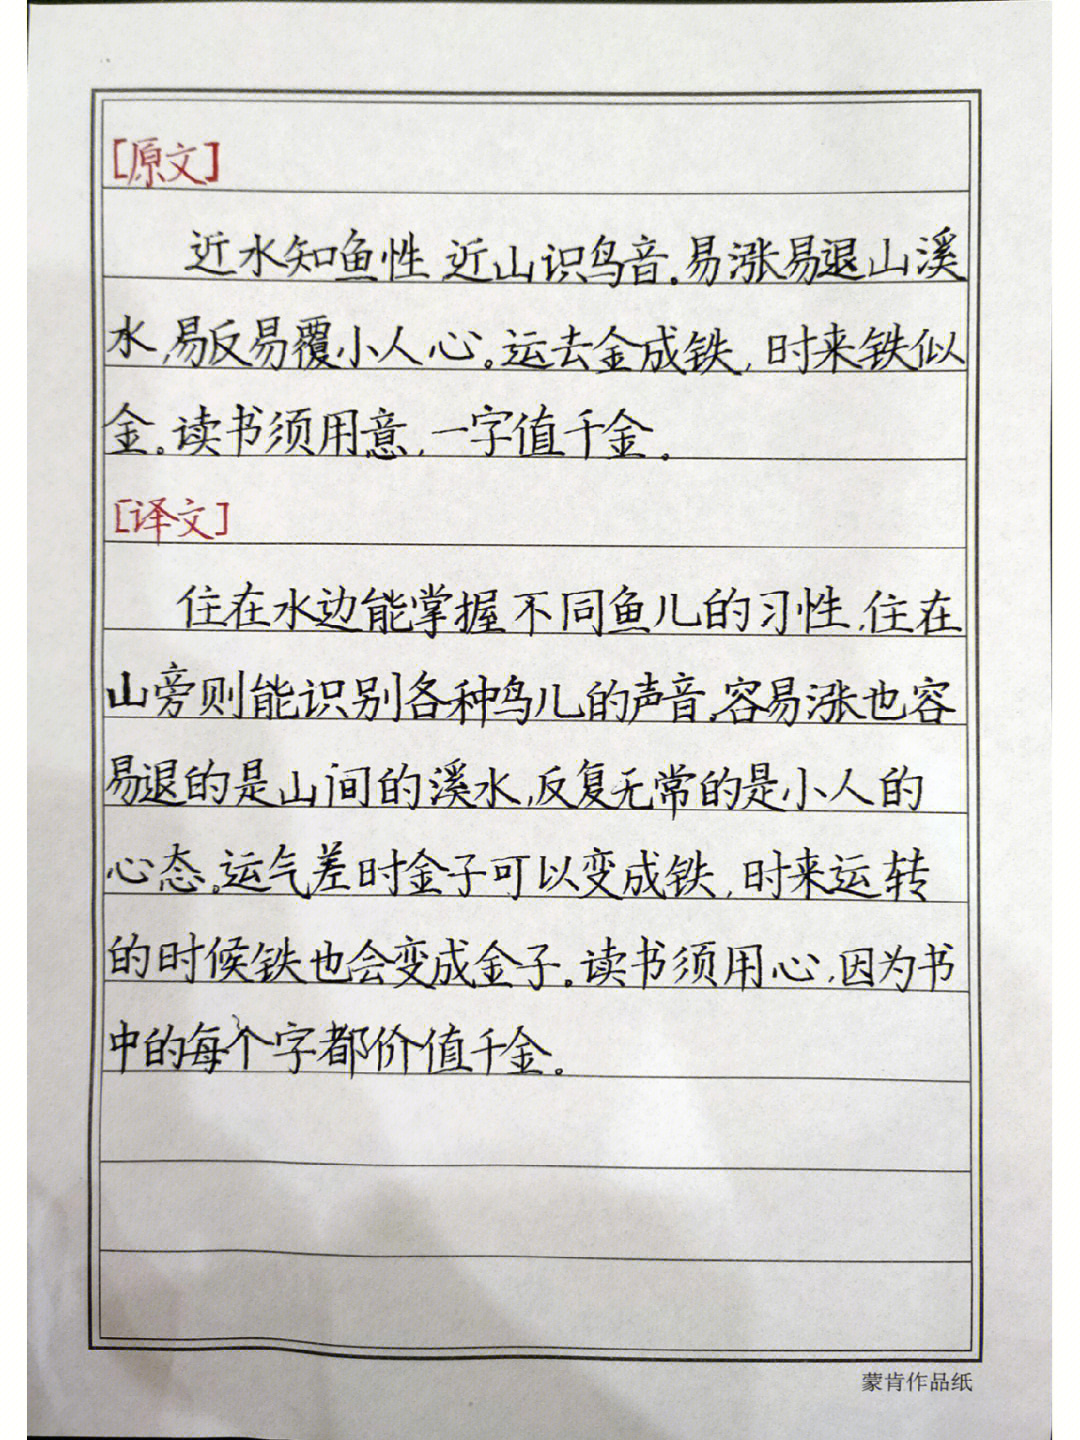 [原文]
近水知鱼性,近山识鸟音。易涨易退山溪
水,易反易覆小人心。运去金成铁,时来铁似
金。读书须用意,一字值千金。
[译文]
住在水边能掌握不同鱼儿的习性,住在
山旁则能识别各种鸟儿的声音。容易涨也容
易退的是山间的溪水,反复无常的是小人的
心态。运气差时金子可以变成铁,时来运转
的时候铁也会变成金子。读书须用心,因为书
中的每个字都价值千金。
蒙肯作品纸